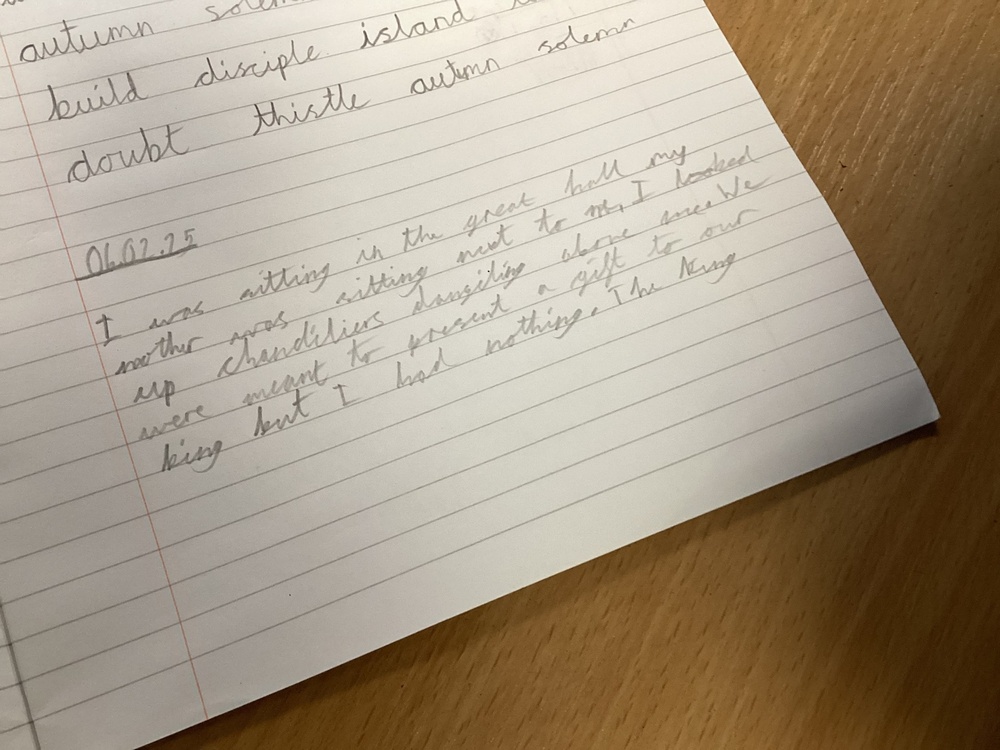 autumn solemn
build disciple island
doubt thistle autumn solemn
06.02.25
I was sitting in the great hall my
mother was sitting next to me, I looked
up chandiliers dangiling above me We
were meant to present a gift to our
king but I had nothing. The King